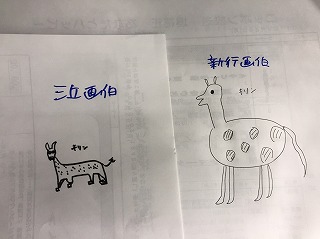 三丘画伯
キリン
新行画伯
キリン